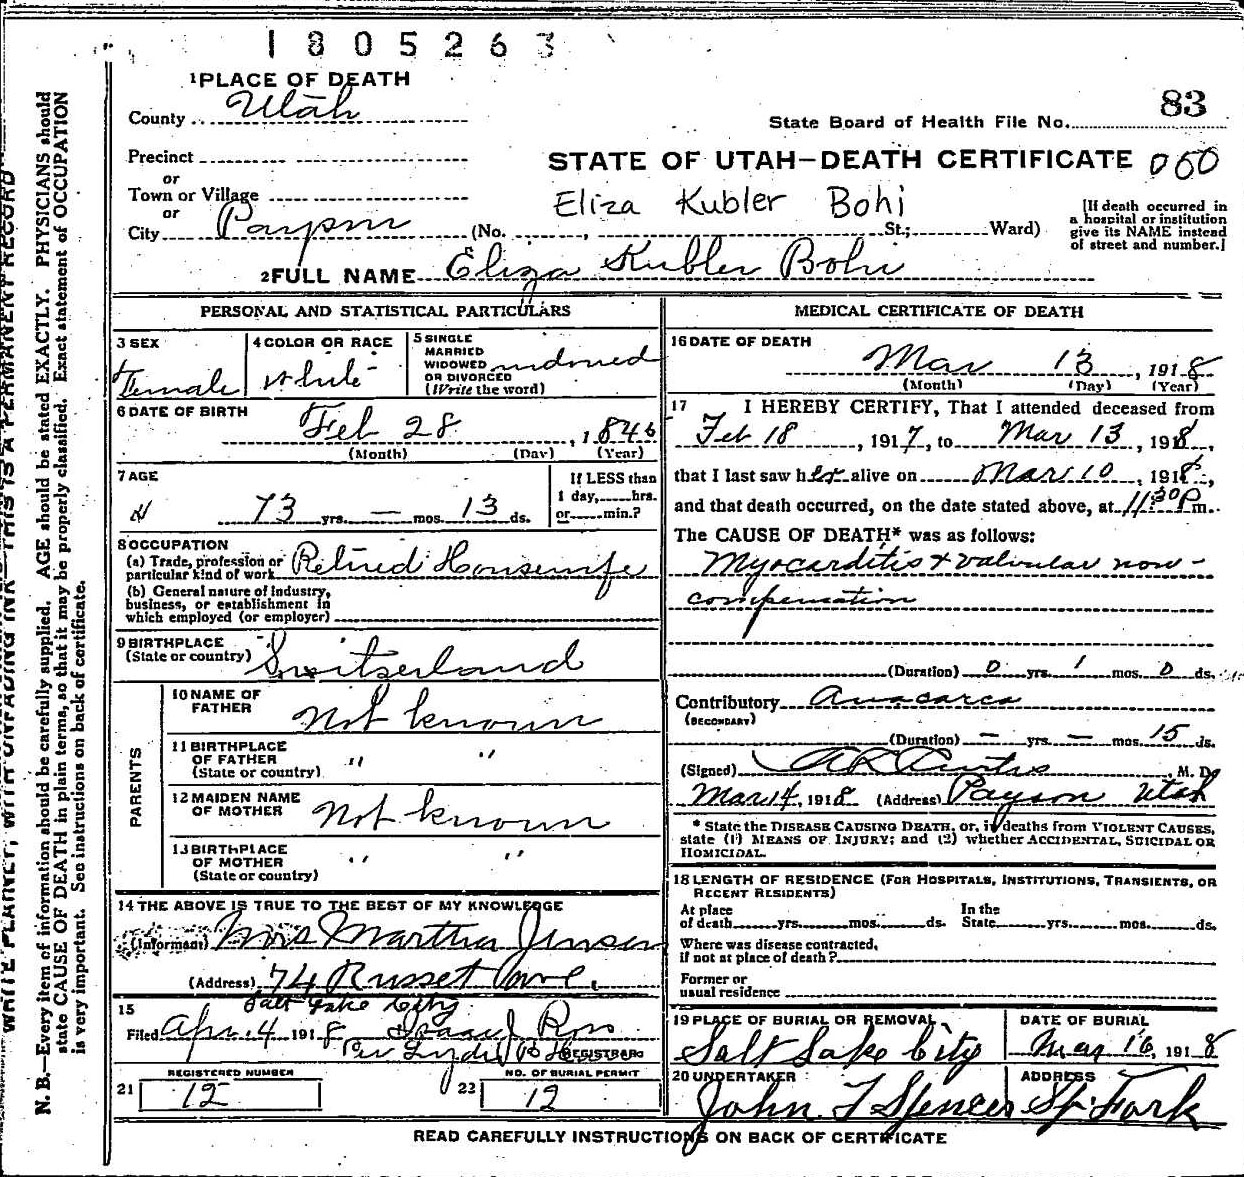 1 8 0 5 2 6 3
1 PLACE OF DEATH
County Utah
State Board of Health File No. 83
Precinct
or
STATE OF UTAH—DEATH CERTIFICATE 060
Town or Village
or
Eliza Kubler Bohi
City Payson (No. , St.; Ward)
[If death occurred in
a hospital or institution
give its NAME instead
of street and number.]
2 FULL NAME Eliza Kubler Bohi
PERSONAL AND STATISTICAL PARTICULARS
3 SEX
Female
4 COLOR OR RACE
White
5 SINGLE
MARRIED
WIDOWED
OR DIVORCED
(Write the word)
widowed
6 DATE OF BIRTH
Feb 28, 1846
(Month) (Day) (Year)
7 AGE
73 yrs. — mos. 13 ds.
If LESS than
1 day, hrs.
or min.?
8 OCCUPATION
(a) Trade, profession or
particular kind of work Retired Housewife
(b) General nature of Industry,
business, or establishment in
which employed (or employer)
9 BIRTHPLACE
(State or country) Switserland
PARENTS
10 NAME OF
FATHER Not known
11 BIRTHPLACE
OF FATHER
(State or country) " "
12 MAIDEN NAME
OF MOTHER Not known
13 BIRTHPLACE
OF MOTHER
(State or country) " "
14 THE ABOVE IS TRUE TO THE BEST OF MY KNOWLEDGE
(Informant) Mrs Martha Jensen
(Address) 74 Russet Ave.
Salt Lake City
15
Filed Apr. 4 1918 Isaac J Ross
Per
REGISTRAR
REGISTERED NUMBER
21 12
NO. OF BURIAL PERMIT
22 12
MEDICAL CERTIFICATE OF DEATH
16 DATE OF DEATH
Mar 13, 1918
(Month) (Day) (Year)
17 I HEREBY CERTIFY, That I attended deceased from
Feb 18, 1917, to Mar 13, 1918,
that I last saw her alive on Mar 10, 1918,
and that death occurred, on the date stated above, at 11:30 P m.
The CAUSE OF DEATH* was as follows:
Myocarditis + valvular non-
compensation
(Duration) 0 yrs. 1 mos. 0 ds.
Contributory Anacarca
(SECONDARY)
(Duration) — yrs. — mos. 15 ds.
(Signed) A R Curtis, M. D.
Mar 14, 1918 (Address) Payson Utah
* State the DISEASE CAUSING DEATH, or, in deaths from VIOLENT CAUSES,
state (1) MEANS OF INJURY; and (2) whether ACCIDENTAL, SUICIDAL OR
HOMICIDAL.
18 LENGTH OF RESIDENCE (FOR HOSPITALS, INSTITUTIONS, TRANSIENTS, OR
RECENT RESIDENTS)
At place
of death yrs. mos. ds.
In the
State yrs. mos. ds.
Where was disease contracted,
if not at place of death?
Former or
usual residence
19 PLACE OF BURIAL OR REMOVAL
Salt Lake City
DATE OF BURIAL
Mar 16, 1918
20 UNDERTAKER
John T Spencer
ADDRESS
Sp. Fork
READ CAREFULLY INSTRUCTIONS ON BACK OF CERTIFICATE
WRITE PLAINLY, WITH UNFADING INK—THIS IS A PERMANENT RECORD
N. B.—Every item of information should be carefully supplied. AGE should be stated EXACTLY. PHYSICIANS should
state CAUSE OF DEATH in plain terms, so that it may be properly classified. Exact statement of OCCUPATION
is very important. See instructions on back of certificate.